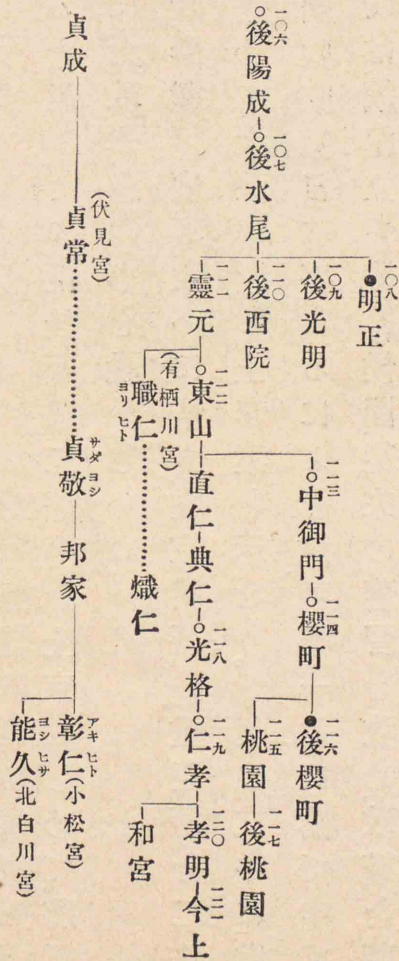 一〇六
後陽成
一〇七
後水尾
一〇八
明正
一〇九
後光明
一一〇
後西院
一一一
靈元
一一二
東山
一一三
中御門
一一四
櫻町
一一六
後櫻町
一一五
桃園
一一七
後桃園
直仁
典仁
一一八
光格
一一九
仁孝
一二〇
孝明
一二一
今上
和宮
(有栖川宮)
職仁
ヨリヒト
熾仁
貞成
(伏見宮)
貞常
貞敬
サダヨシ
邦家
彰仁(小松宮)
アキヒト
能久(北白川宮)
ヨシヒサ